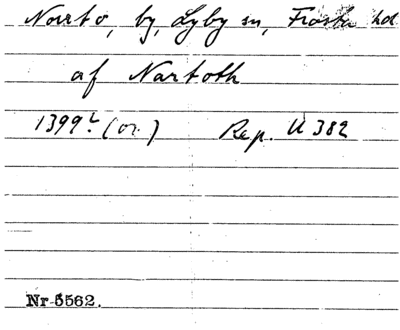 Norrto, by, Lyby sn, Frosta hd
af Nartoth
1399? (or.) Rep. II 382
Nr 5562.